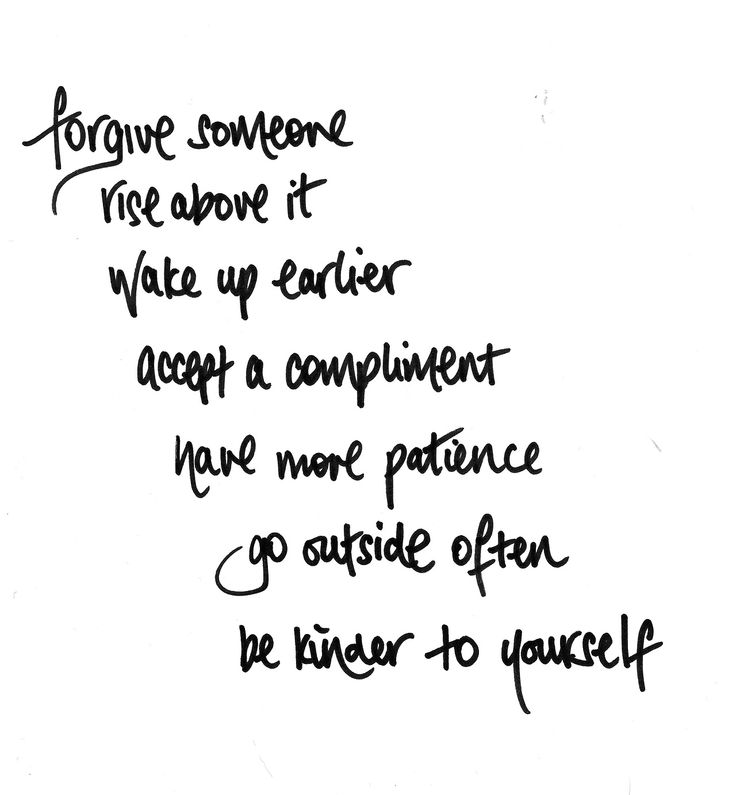 forgive someone
rise above it
wake up earlier
accept a compliment
have more patience
go outside often
be kinder to yourself